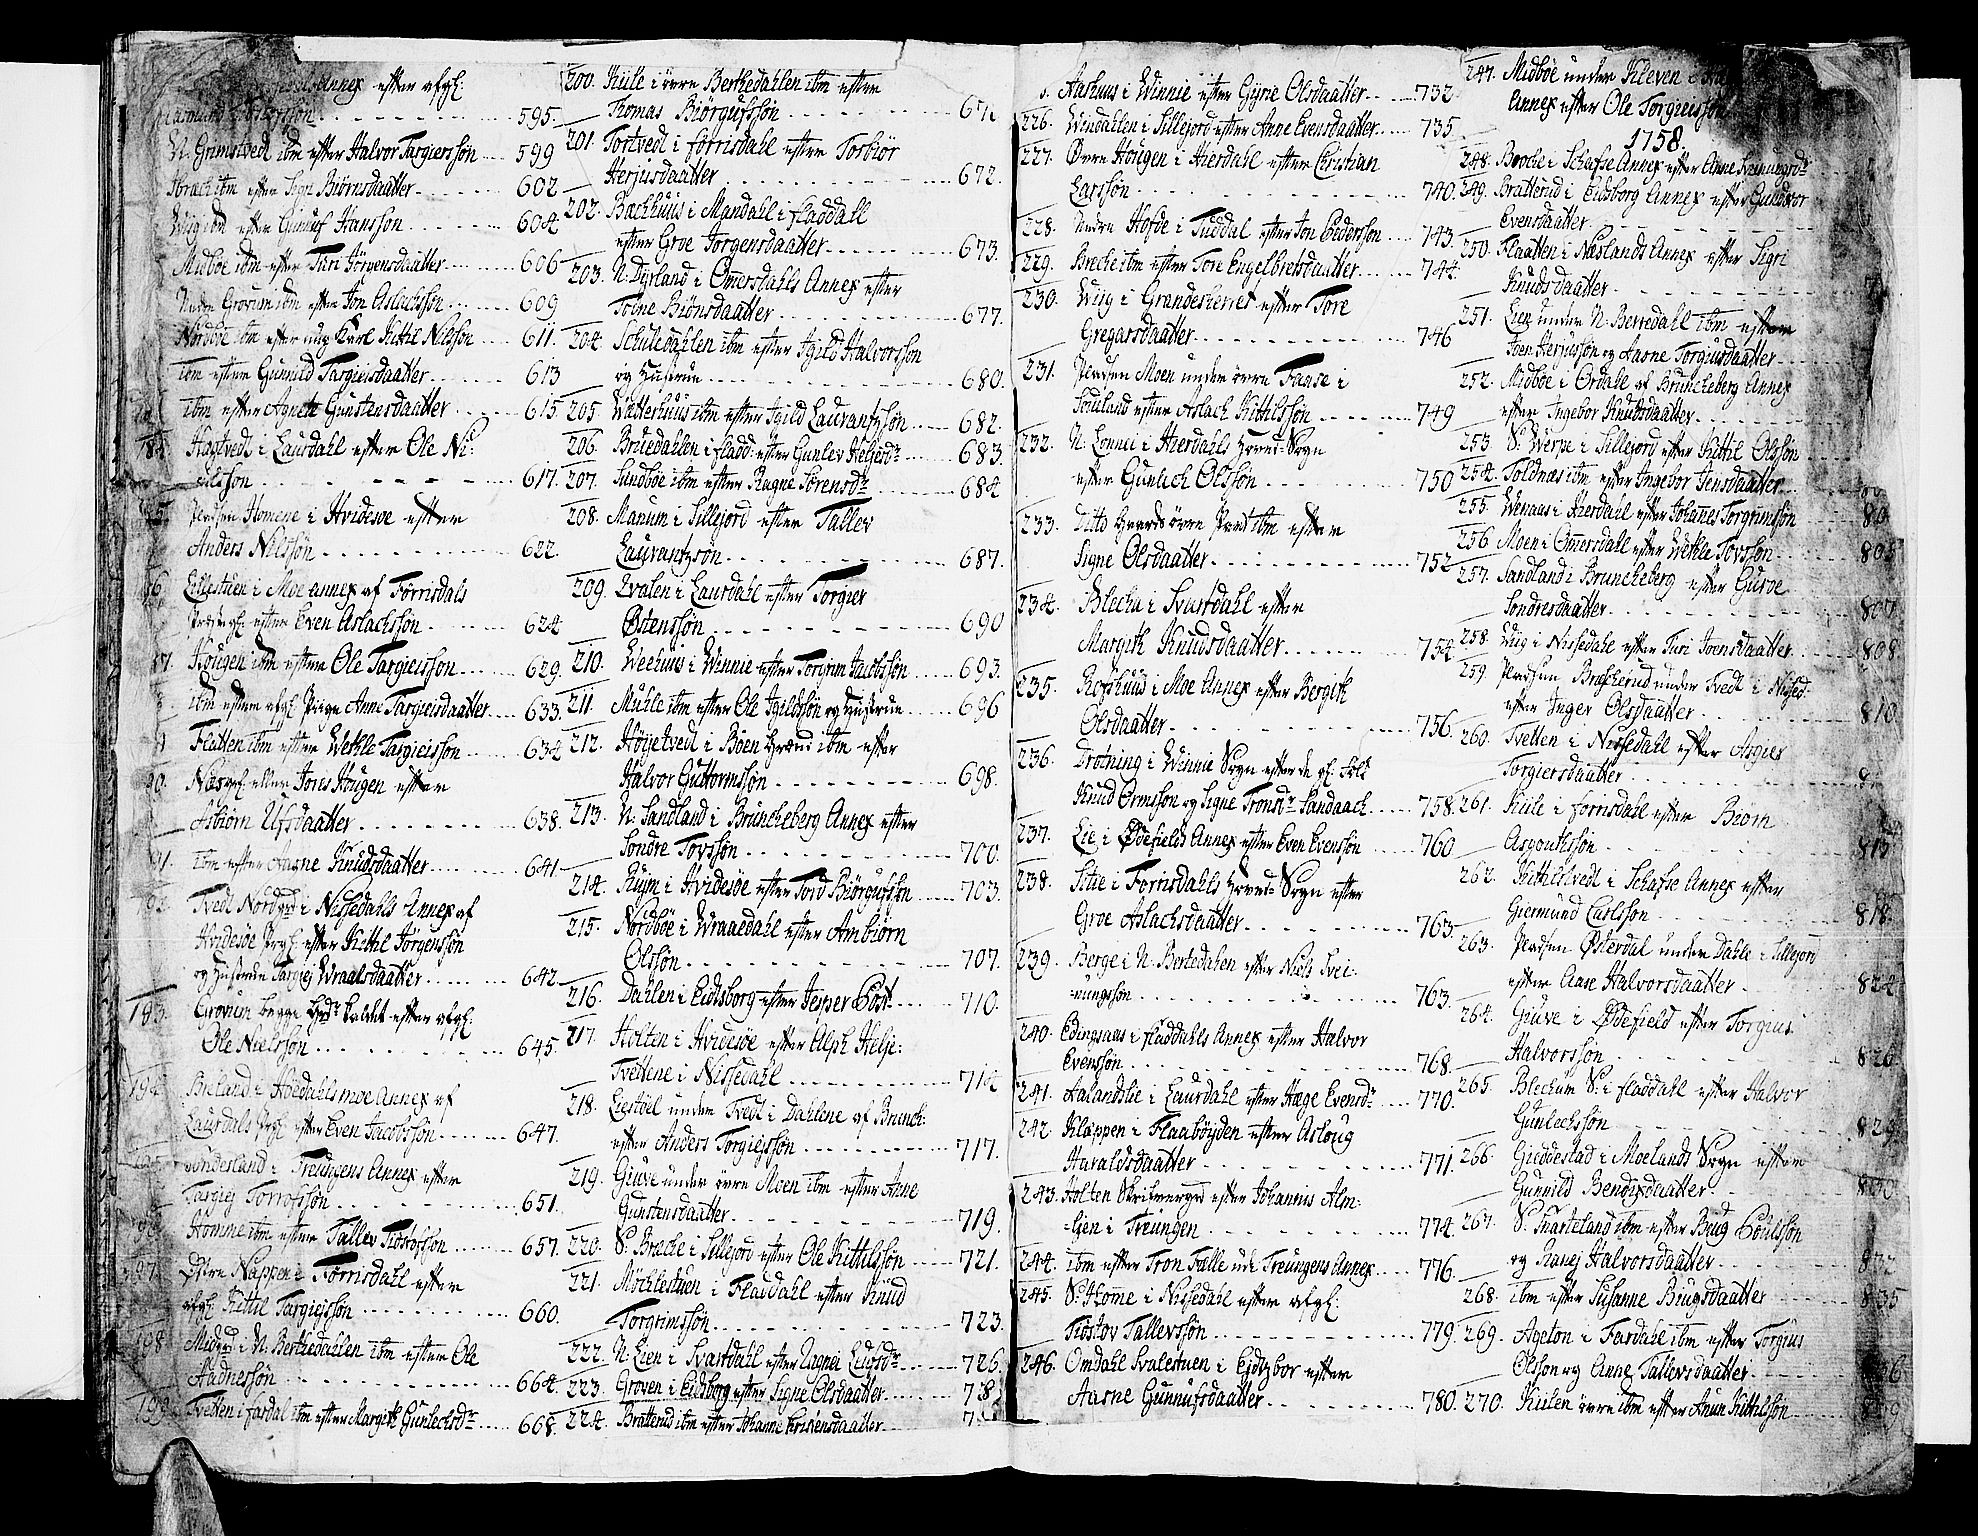 Annex efter afgl:
595.
N. Grimstvedt ibm efter Halvor Targiersson 599
ibm efter Sign Biörnsdaatter 602
Wiig ibm efter Gunuf Hansson 604
Midboe ibm efter Turi Jörgensdaatter 606
Nedre Grovum ibm efter Jon Aslachssön 609
Nordboe ibm efter ung Karl Kittil Nilsson 611.
ibm efter Gunnild Targieisdaatter 613
ibm efter Agnete Gunstensdaatter 615
184. Hagtvedt i Laurdahl efter Ole Ni:
elsson 617.
Pladsen Homene i Hvidesøe efter
Anders Nilssøn 622.
Ellestuen i Moe annex af Førrisdals
Præstegl: efter Even Aslachssøn 624
Hougen ibm efter Ole Targieisson 629.
ibm efter afgl. Pige Anne Targieisdaatter 633.
Flatten ibm efter Wetle Targieisson 634
Næs eller Jores Hougen efter
Asbiörn Ufsdaatter 638.
191. ibm efter Aagne Knudsdaatter 641.
192. Tvedt Nordgrd i Nissedahls Annex af
Hvidesøe Prgl. efter Kittil Jørgenssøn
og Hustrue Targiej Wraalsdaatter 642.
193. Grovum begge kaldet efter afgl:
Ole Nielssøn 645.
194. Brieland i Høedahlsmoe Annex af
Laurdals Prgl efter Even Jacobssøn 647.
195. Sundesland i Treungens Annex efter
Targiej Torrofssøn 651.
196. Homme ibm efter Tallev Tiostofsson 657.
197. Østre Nappen i Førrisdahl efter
afgl: Kittil Targieisson 660.
198. Midgrd i N. Berthedahlen ibm efter Ole
Aadnessøn 664.
199. Tvetten i fardal ibm efter Margit Gunlechsdr 668.
200. Kiile i övre Berthedahlen ibm efter
Thomas Biörgufssøn 671
201. Tortvedt i førrisdahl efter Torbiör
Herjusdaatter 672.
202. Bachhuus i Mandahl i fladdall
efter Groe Jorgensdaatter 673.
203. N. Dyrland i Omersdahls Annex efter
Tolne Biönsdaatter 677.
204. Schuledahlen ibm efter Igild Halvorssøn
og Hustrue 680.
205. Watterhuus ibm efter Igild Laurantzsøn 682.
206. Bruedahlen i fladd: efter Gunlev Heljedr 683.
207. Sundbøe ibm efter Ragne Sörensdr 684
208. Manum i Sillejord efter Tallev
Laurantzsøn 687.
209. Qvalen i Laurdahl efter Torgier
Østenssøn 690
210. Weehuus i Winnie efter Torgrim Jacobssøn 693.
211. Muhle ibm efter Ole Igildssøn og Hustrue 696
212. Høyetvedt i Bøen Grænd ibm efter
Halvor Guttormssøn 698.
213. N. Sandland i Bruncheberg Annex efter
Sondre Tovssøn 700.
214. Ruym i Hvidesøe efter Tord Biörgufssøn 703.
215. Nordbøe i Wraaedahl efter Ambiörn
Olssøn 707.
216. Dahlen i Eidsborg efter Jesper Post 710.
217. Holten i Hvidesøe efter Alph Helje:
Tvettene i Nissedahl 714
218. Liestøel under Tvedt i Dahlene af Brunch:
efter Anders Torgiejssøn 717.
219. Giuve under övre Moen ibm efter Anne
Gunstensdaatter 719.
220. S. Bræche i Sillejord efter Ole Kittilssøn 721.
221. Möchlestuen i Fladdahl efter Knud
Torgrimssøn 723.
222. N. Lien i Svartdahl efter Ragne Leifsdr 726
223. Groven i Eidsborg efter Signe Olsdaatter 728
224. Bratterud ibm efter Johanne Kristensdaatter
Aashuus i Winnie efter Gyrie Olsdaatter 732
226. Wendahlen i Sillejord efter Anne Evensdaatter 735
227. Øvre Hougen i Hierdahl efter Christian
Larssøn 740.
228. Nedre Hofde i Tuddal efter Jon Pederssøn 743.
229. Breche ibm efter Tore Engelbretsdaatter 744.
230. Wiig i Grandesherret efter Tore
Gregarsdaatter 746
231. Pladsen Moen under övre Fanse i
Souland efter Aslach Kittilssøn 749
232. N. Lonnei i Hierdahls Hoved-Sogn
efter Gunlech Olssøn 750
233. Ditto Gaards övre Plads ibm efter
Signe Olsdaatter 752
234. Blecha i Svartdahl efter
Margith Knudsdaatter 754
235. Rofshuus i Moe Annex efter Bergith
Olsdaatter 756.
236. Drotning i Winnie Sogn efter de gl: Folk
Knud Ormssøn og Signe Tronsdr Sandaach 758.
237. Lie i Ødefields Annex efter Even Evensøn 760
238. Sitie i Forrisdahls Hoved-Sogn efter
Groe Aslachsdaatter 763.
239. Berge i N. Bertedahlen efter Niels Svei-
nungssøn 763.
240. Edingsaas i fladdahls Annex efter Halvor
Evenssøn 768.
241. Aalandslie i Laurdahl efter Hæge Evensdr 770.
242. Klappen i Flaabøygden efter Asloug
Haraldsdaatter 771.
243. Holten Skrifvergrd efter Johannes Alm-
lien i Treungen 774.
244. ibm efter Tron Falle ude Treungens Annex 776.
245. S. Home i Nissedahl efter afgl:
Tiostov Tallevssøn 779.
246. Omdahl Svalestuen i Ejdtzbor efter
Aasne Gunnufsdaatter 780.
247. Midbøe under Kleven i
Annex efter Ole Torgieissøn
1758.
248. Broche i Schafse Annex efter Anne Sveinungsdr
249. Bratterud i Eidsborg Annex efter Gundvor
Evensdaatter
250. Flaatten i Næslands Annex efter Sigri
Knudsdaatter
251. Lien under N. Berredahl ibm efter
Joen Herjussøn og Aasne Torgiusdaatter
252. Midbøe i Ordale af Bruncheberg Annex
efter Ingebor Knudsdaatter
253. S. Werpe i Sillejord efter Kittil Olssøn
254. Toldnæs ibm efter Ingebor Jensdaatter
255. Weraas i Hierdahl efter Johanes Torgrimssøn
256. Moen i Omersdall efter Wetle Tovssøn 805
257. Sandland i Bruncheberg efter Gurve
Sondresdaatter 807
258. Wiig i Nissedahl efter Turi Joensdaatter 808
259. Pladsen Brecherud under Tvedt i Nissed-
efter Inger Olsdaatter 810
260. Tvetten i Nissedahl efter Asgier
Torgiersdaatter
261. Kiile i forrisdahl efter Biørn
Asgouthsøn 815
262. Kittilstvedt i Schafse Annex efter
Giermund Carlssøn 818.
263. Pladsen Østerdal under Dahle i Sillejord
efter Aase Halvorsdaatter 824
264. Giuve i Ødefield efter Torgius
Halvorssøn 826
265. Blechum S. i fladdahl efter Halvor
Gunlechssøn 829
266. Gieddestad i Moelands Sogn efter
Gunnild Bendixdaatter 830
267. S. Snarteland ibm efter Biug Poulssøn
og Ranej Halvorsdaatter 832
268. ibm efter Susanne Biugsdaatter 835
269. Ageton i Fardahl ibm efter Torgius
Olssøn og Anne Tallevsdaatter 836
270. Kiilen övre ibm efter Anun Kittilssøn